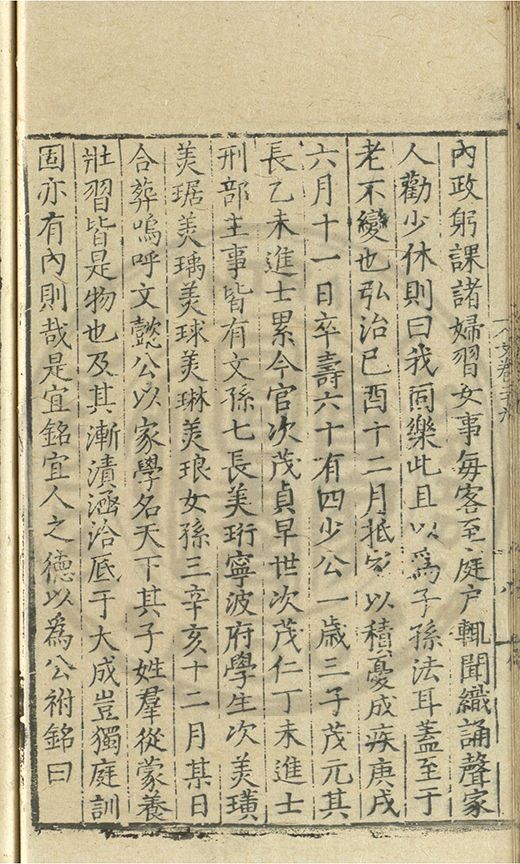 內政躬課諸婦習女事每客至庭户輒聞織誦聲家
人勸少休則曰我固樂此且以爲子孫法耳蓋至于
老不變也弘治己酉十二月抵以積憂成疾庚戌
六月十一日卒壽六十有四少公一歳三子茂元其
長乙未進士累今官次茂貞早世次茂仁丁未進士
刑部主事皆有文孫七長美珩寧波府學生次美璜
美琚美瑀美球美琳美琅女孫三辛亥十二月某日
合葬嗚呼文懿公以家學名天下其子姓羣從蒙養
壯習皆是物也及其漸漬涵洽底于大成豈獨庭訓
固亦有內則哉是宜銘宜人之德以爲公祔銘曰